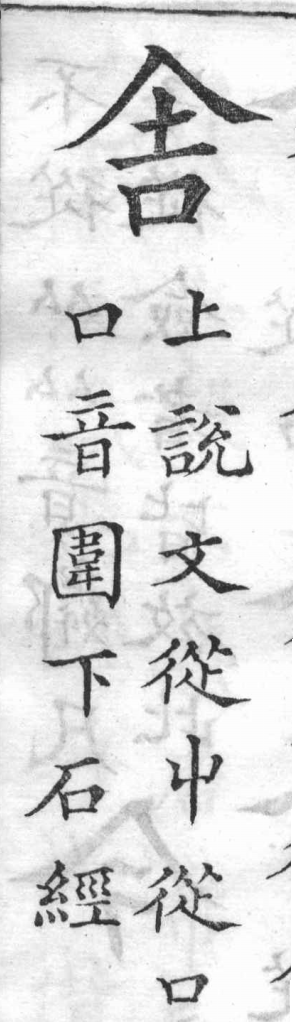 舍
上說文從屮從口
口音圍下石經